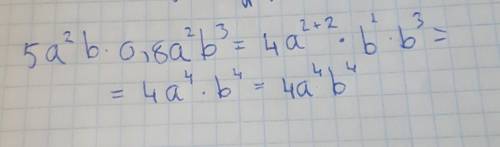 5a²b · 0,8a²b³ = 4a²⁺² · b¹ · b³ =
= 4a⁴ · b⁴ = 4a⁴b⁴